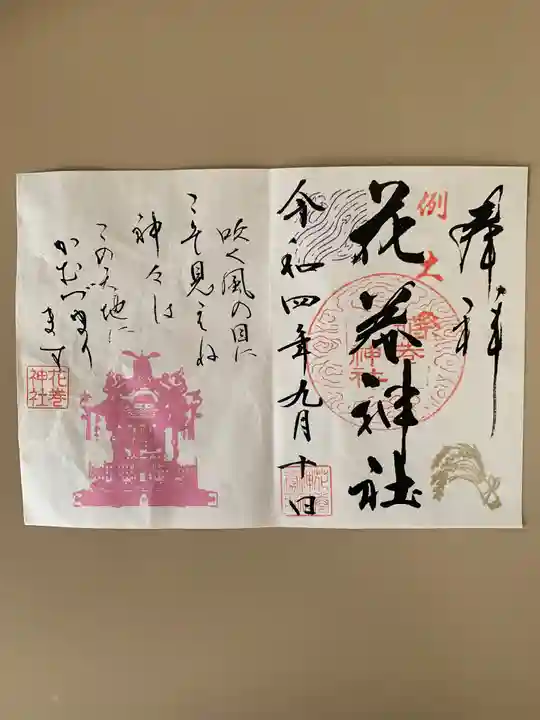 奉拝
例大祭
花巻神社
花巻神社
令和四年九月十日
吹く風の目に
こそ見えね
神々は
この天地に
かむづまり
ます
花巻
神社